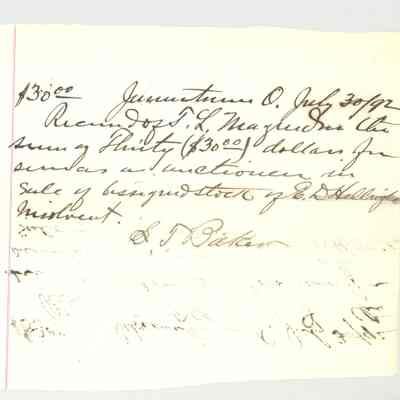 $30.00 Jamestown O. July 30/92
Received of T. L. Magruder the
sum of Thirty ($30.00) dollars for
services as auctioneer in
sale of assigned stock of E. D.
Insolvent.
S. T. Baker